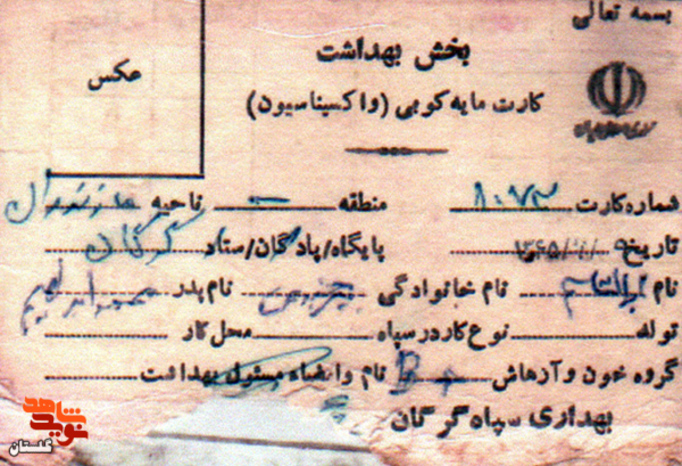 بسمه تعالی
بخش بهداشت
عکس
کارت مایه کوبی (واکسیناسیون)
شماره کارت ۸۰۷۳ منطقه - ناحیه مازندران
تاریخ پایگاه/پادگان/ستاد گرگان
نام ابوالقاسم نام خانوادگی نام پدر محمد ابراهیم
تولد نوع کار در سپاه محل کار
گروه خون و آرهاش B+ نام و امضاء مسئول بهداشت
بهداری سپاه گرگان
نوید شاهد
گلستان